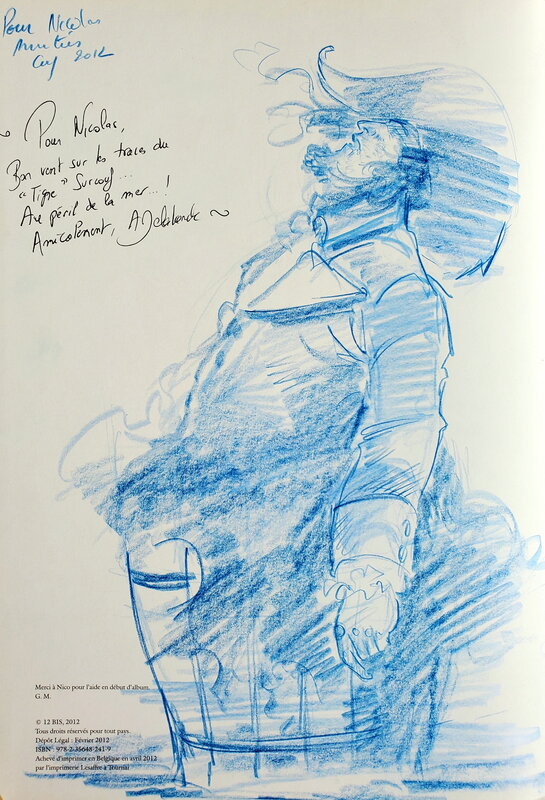 Pour Nicolas
Amitiés
2012
Pour Nicolas,
Bon vent sur les traces du
"Tigre" Surcouf...
Au péril de la mer...!
Amicalement, A Delalande
Merci à Nico pour l'aide en début d'album.
G. M.
© 12 BIS, 2012
Tous droits réservés pour tout pays.
Dépôt Légal : Février 2012
ISBN : 978-2-35648-241-9
Achevé d'imprimer en Belgique en avril 2012
par l'imprimerie Lesaffre à Tournai